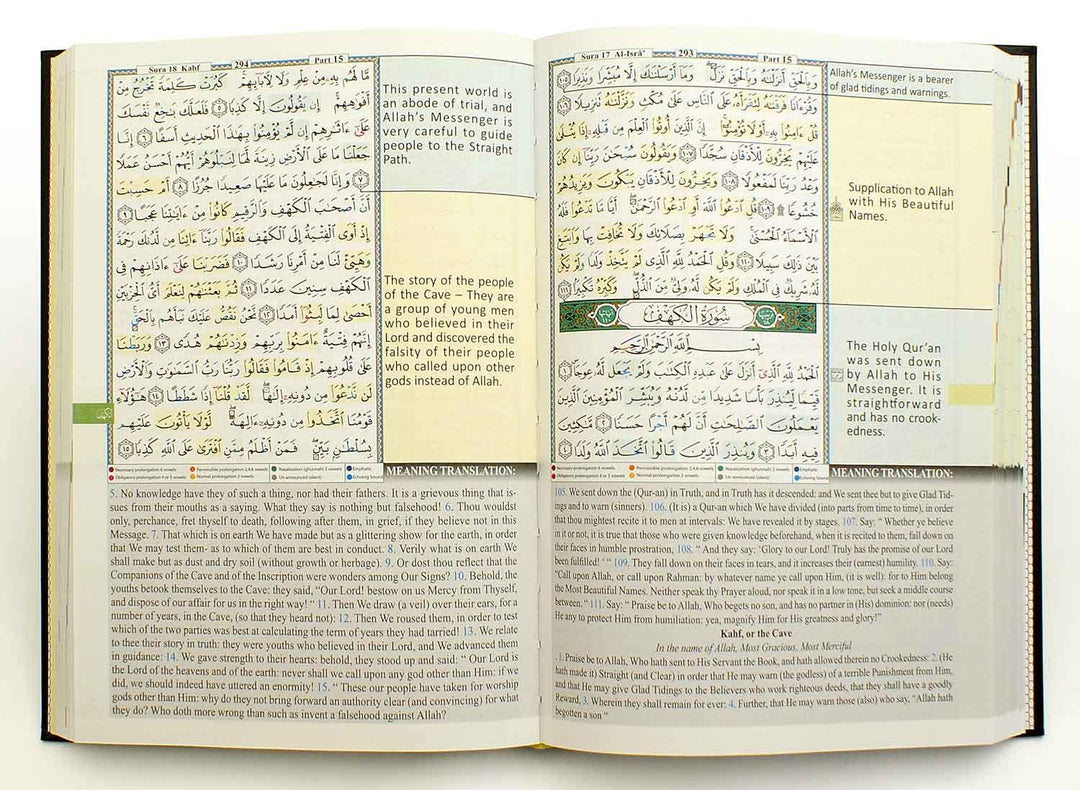 Sura 17 Al-Isrā' 293 Part 15
وَبِٱلْحَقِّ أَنزَلْنَٰهُ وَبِٱلْحَقِّ نَزَلَ ۗ وَمَآ أَرْسَلْنَٰكَ إِلَّا مُبَشِّرًا وَنَذِيرًا ١٠٥
وَقُرْءَانًا فَرَقْنَٰهُ لِتَقْرَأَهُۥ عَلَى ٱلنَّاسِ عَلَىٰ مُكْثٍ وَنَزَّلْنَٰهُ تَنزِيلًا ١٠٦
قُلْ ءَامِنُوا۟ بِهِۦٓ أَوْ لَا تُؤْمِنُوٓا۟ ۚ إِنَّ ٱلَّذِينَ أُوتُوا۟ ٱلْعِلْمَ مِن قَبْلِهِۦٓ إِذَا يُتْلَىٰ
عَلَيْهِمْ يَخِرُّونَ لِلْأَذْقَانِ سُجَّدًا ١٠٧ وَيَقُولُونَ سُبْحَٰنَ رَبِّنَآ إِن كَانَ
وَعْدُ رَبِّنَا لَمَفْعُولًا ١٠٨ وَيَخِرُّونَ لِلْأَذْقَانِ يَبْكُونَ وَيَزِيدُهُمْ
خُشُوعًا ۩ ١٠٩ قُلِ ٱدْعُوا۟ ٱللَّهَ أَوِ ٱدْعُوا۟ ٱلرَّحْمَٰنَ ۖ أَيًّا مَّا تَدْعُوا۟ فَلَهُ
ٱلْأَسْمَآءُ ٱلْحُسْنَىٰ ۚ وَلَا تَجْهَرْ بِصَلَاتِكَ وَلَا تُخَافِتْ بِهَا وَٱبْتَغِ
بَيْنَ ذَٰلِكَ سَبِيلًا ١١٠ وَقُلِ ٱلْحَمْدُ لِلَّهِ ٱلَّذِى لَمْ يَتَّخِذْ وَلَدًا وَلَمْ يَكُن
لَّهُۥ شَرِيكٌ فِى ٱلْمُلْكِ وَلَمْ يَكُن لَّهُۥ وَلِىٌّ مِّنَ ٱلذُّلِّ ۖ وَكَبِّرْهُ تَكْبِيرًۢا ١١١
سُورَةُ الكَهْفِ
بِسْمِ ٱللَّهِ ٱلرَّحْمَٰنِ ٱلرَّحِيمِ
ٱلْحَمْدُ لِلَّهِ ٱلَّذِىٓ أَنزَلَ عَلَىٰ عَبْدِهِ ٱلْكِتَٰبَ وَلَمْ يَجْعَل لَّهُۥ عِوَجَا ۜ ١
قَيِّمًا لِّيُنذِرَ بَأْسًا شَدِيدًا مِّن لَّدُنْهُ وَيُبَشِّرَ ٱلْمُؤْمِنِينَ ٱلَّذِينَ
يَعْمَلُونَ ٱلصَّٰلِحَٰتِ أَنَّ لَهُمْ أَجْرًا حَسَنًا ٢ مَّٰكِثِينَ
فِيهِ أَبَدًا ٣ وَيُنذِرَ ٱلَّذِينَ قَالُوا۟ ٱتَّخَذَ ٱللَّهُ وَلَدًا ٤
Allah's Messenger is a bearer
of glad tidings and warnings.
Supplication to Allah
with His Beautiful
Names.
The Holy Qur'an
was sent down
by Allah to His
Messenger. It is
straightforward
and has no crook-
edness.
Necessary prolongation 6 vowels Permissible prolongation 2,4,6 vowels Nazalization (ghunnah) 2 vowels Emphatic
Obligatory prolongation 4 or 5 vowels Normal prolongation 2 vowels Un announced (silent) Echoing Sound
MEANING TRANSLATION:
105. We sent down the (Qur-an) in Truth, and in Truth has it descended: and We sent thee but to give Glad Tid-
ings and to warn (sinners). 106. (It is) a Qur-an which We have divided (into parts from time to time), in order
that thou mightest recite it to men at intervals: We have revealed it by stages. 107. Say: " Whether ye believe
in it or not, it is true that those who were given knowledge beforehand, when it is recited to them, fall down on
their faces in humble prostration, 108. " And they say: 'Glory to our Lord! Truly has the promise of our Lord
been fulfilled! ' " 109. They fall down on their faces in tears, and it increases their (earnest) humility. 110. Say:
"Call upon Allah, or call upon Rahman: by whatever name ye call upon Him, (it is well): for to Him belong
the Most Beautiful Names. Neither speak thy Prayer aloud, nor speak it in a low tone, but seek a middle course
between. " 111. Say: " Praise be to Allah, Who begets no son, and has no partner in (His) dominion: nor (needs)
He any to protect Him from humiliation: yea, magnify Him for His greatness and glory!"
Kahf, or the Cave
In the name of Allah, Most Gracious, Most Merciful
1. Praise be to Allah, Who hath sent to His Servant the Book, and hath allowed therein no Crookedness: 2. (He
hath made it) Straight (and Clear) in order that He may warn (the godless) of a terrible Punishment from Him,
and that He may give Glad Tidings to the Believers who work righteous deeds, that they shall have a goodly
Reward, 3. Wherein they shall remain for ever: 4. Further, that He may warn those (also) who say, "Allah hath
begotten a son "
Sura 18 Kahf 294 Part 15
مَّا لَهُم بِهِۦ مِنْ عِلْمٍ وَلَا لِءَابَآئِهِمْ ۚ كَبُرَتْ كَلِمَةً تَخْرُجُ مِنْ
أَفْوَٰهِهِمْ ۚ إِن يَقُولُونَ إِلَّا كَذِبًا ٥ فَلَعَلَّكَ بَٰخِعٌ نَّفْسَكَ
عَلَىٰٓ ءَاثَٰرِهِمْ إِن لَّمْ يُؤْمِنُوا۟ بِهَٰذَا ٱلْحَدِيثِ أَسَفًا ٦ إِنَّا
جَعَلْنَا مَا عَلَى ٱلْأَرْضِ زِينَةً لَّهَا لِنَبْلُوَهُمْ أَيُّهُمْ أَحْسَنُ عَمَلًا
٧ وَإِنَّا لَجَٰعِلُونَ مَا عَلَيْهَا صَعِيدًا جُرُزًا ٨ أَمْ حَسِبْتَ
أَنَّ أَصْحَٰبَ ٱلْكَهْفِ وَٱلرَّقِيمِ كَانُوا۟ مِنْ ءَايَٰتِنَا عَجَبًا ٩
إِذْ أَوَى ٱلْفِتْيَةُ إِلَى ٱلْكَهْفِ فَقَالُوا۟ رَبَّنَآ ءَاتِنَا مِن لَّدُنكَ رَحْمَةً
وَهَيِّئْ لَنَا مِنْ أَمْرِنَا رَشَدًا ١٠ فَضَرَبْنَا عَلَىٰٓ ءَاذَانِهِمْ فِى
ٱلْكَهْفِ سِنِينَ عَدَدًا ١١ ثُمَّ بَعَثْنَٰهُمْ لِنَعْلَمَ أَىُّ ٱلْحِزْبَيْنِ
أَحْصَىٰ لِمَا لَبِثُوٓا۟ أَمَدًا ١٢ نَّحْنُ نَقُصُّ عَلَيْكَ نَبَأَهُم بِٱلْحَقِّ ۚ
إِنَّهُمْ فِتْيَةٌ ءَامَنُوا۟ بِرَبِّهِمْ وَزِدْنَٰهُمْ هُدًى ١٣ وَرَبَطْنَا
عَلَىٰ قُلُوبِهِمْ إِذْ قَامُوا۟ فَقَالُوا۟ رَبُّنَا رَبُّ ٱلسَّمَٰوَٰتِ وَٱلْأَرْضِ
لَن نَّدْعُوَا۟ مِن دُونِهِۦٓ إِلَٰهًا ۖ لَّقَدْ قُلْنَآ إِذًا شَطَطًا ١٤ هَٰٓؤُلَآءِ
قَوْمُنَا ٱتَّخَذُوا۟ مِن دُونِهِۦٓ ءَالِهَةً ۖ لَّوْلَا يَأْتُونَ عَلَيْهِم
بِسُلْطَٰنٍۭ بَيِّنٍ ۖ فَمَنْ أَظْلَمُ مِمَّنِ ٱفْتَرَىٰ عَلَى ٱللَّهِ كَذِبًا ١٥
الكهف
This present world is
an abode of trial, and
Allah's Messenger is
very careful to guide
people to the Straight
Path.
The story of the people
of the Cave – They are
a group of young men
who believed in their
Lord and discovered the
falsity of their people
who called upon other
gods instead of Allah.
Necessary prolongation 6 vowels Permissible prolongation 2,4,6 vowels Nazalization (ghunnah) 2 vowels Emphatic
Obligatory prolongation 4 or 5 vowels Normal prolongation 2 vowels Un announced (silent) Echoing Sound
MEANING TRANSLATION:
5. No knowledge have they of such a thing, nor had their fathers. It is a grievous thing that is-
sues from their mouths as a saying. What they say is nothing but falsehood! 6. Thou wouldst
only, perchance, fret thyself to death, following after them, in grief, if they believe not in this
Message. 7. That which is on earth We have made but as a glittering show for the earth, in order
that We may test them- as to which of them are best in conduct. 8. Verily what is on earth We
shall make but as dust and dry soil (without growth or herbage). 9. Or dost thou reflect that the
Companions of the Cave and of the Inscription were wonders among Our Signs? 10. Behold, the
youths betook themselves to the Cave: they said, "Our Lord! bestow on us Mercy from Thyself,
and dispose of our affair for us in the right way! " 11. Then We draw (a veil) over their ears, for a
number of years, in the Cave, (so that they heard not): 12. Then We roused them, in order to test
which of the two parties was best at calculating the term of years they had tarried! 13. We relate
to thee their story in truth: they were youths who believed in their Lord, and We advanced them
in guidance: 14. We gave strength to their hearts: behold, they stood up and said: " Our Lord is
the Lord of the heavens and of the earth: never shall we call upon any god other than Him: if we
did, we should indeed have uttered an enormity! 15. " These our people have taken for worship
gods other than Him: why do they not bring forward an authority clear (and convincing) for what
they do? Who doth more wrong than such as invent a falsehood against Allah?